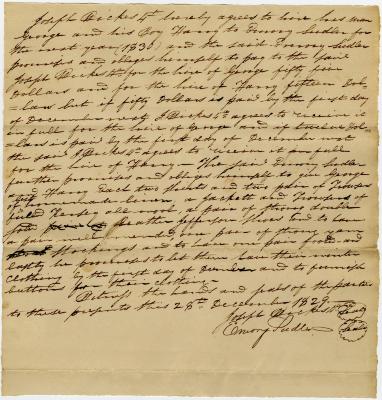 Joseph Wickes 4th hereby agrees to hire his man
George and his Boy Harry to Emory Sudler for
the next year (1830) and the said Emory Sudler
promises and obliges himself to pay to the said
Joseph Wickes 4th for the hire of George fifty five
Dollars and for the hire of Harry fifteen Dol-
=lars but if fifty Dollars is paid by the first day
of December next J Wickes 4th agrees to receive it
in full for the hire of George and if twelve Dol-
=lars is paid by the first day of December next
the said J Wickes 4th agrees to receive it in full
for the hire of Harry — The said Emory Sudler
further promises and obliges himself to give George
and Harry each two shirts and two pair of Trousers
of homemade linen, a jackett and Trousers of
fulled Kersey all wool, a pair of strong double
soled leather shoes and to have
a pair mended, one pair of strong yarn
Stockings and to have one pair footed and
lastly he promises to let them have their winter
clothing by the first day of and to furnish
buttons for their clothing
Witness the hands and seals of the parties
to these presents this 28th December 1829
Joseph Wickes 4th Seal
Emory Sudler Seal